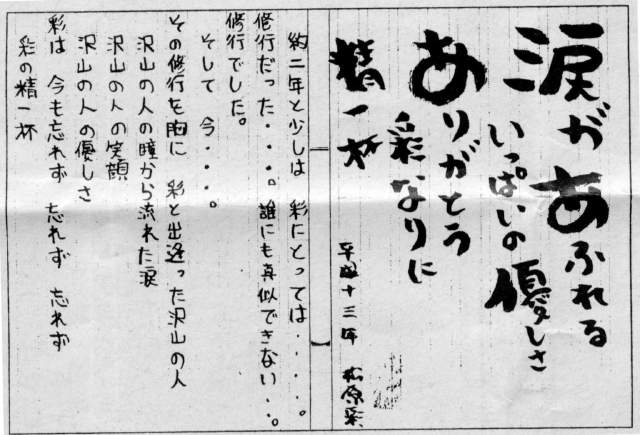 涙があふれる
いっぱいの優しさ
ありがとう
彩なりに
精一杯
平成十三年 松原彩
約二年と少しは 彩にとっては・・・・。
修行だった・・・。誰にも真似できない・・。
修行でした。
そして 今・・・・。
その修行を胸に 彩と出逢った沢山の人
沢山の人の瞳から流れた涙
沢山の人の笑顔
沢山の人の優しさ
彩は 今も忘れず 忘れず 忘れず
彩の精一杯